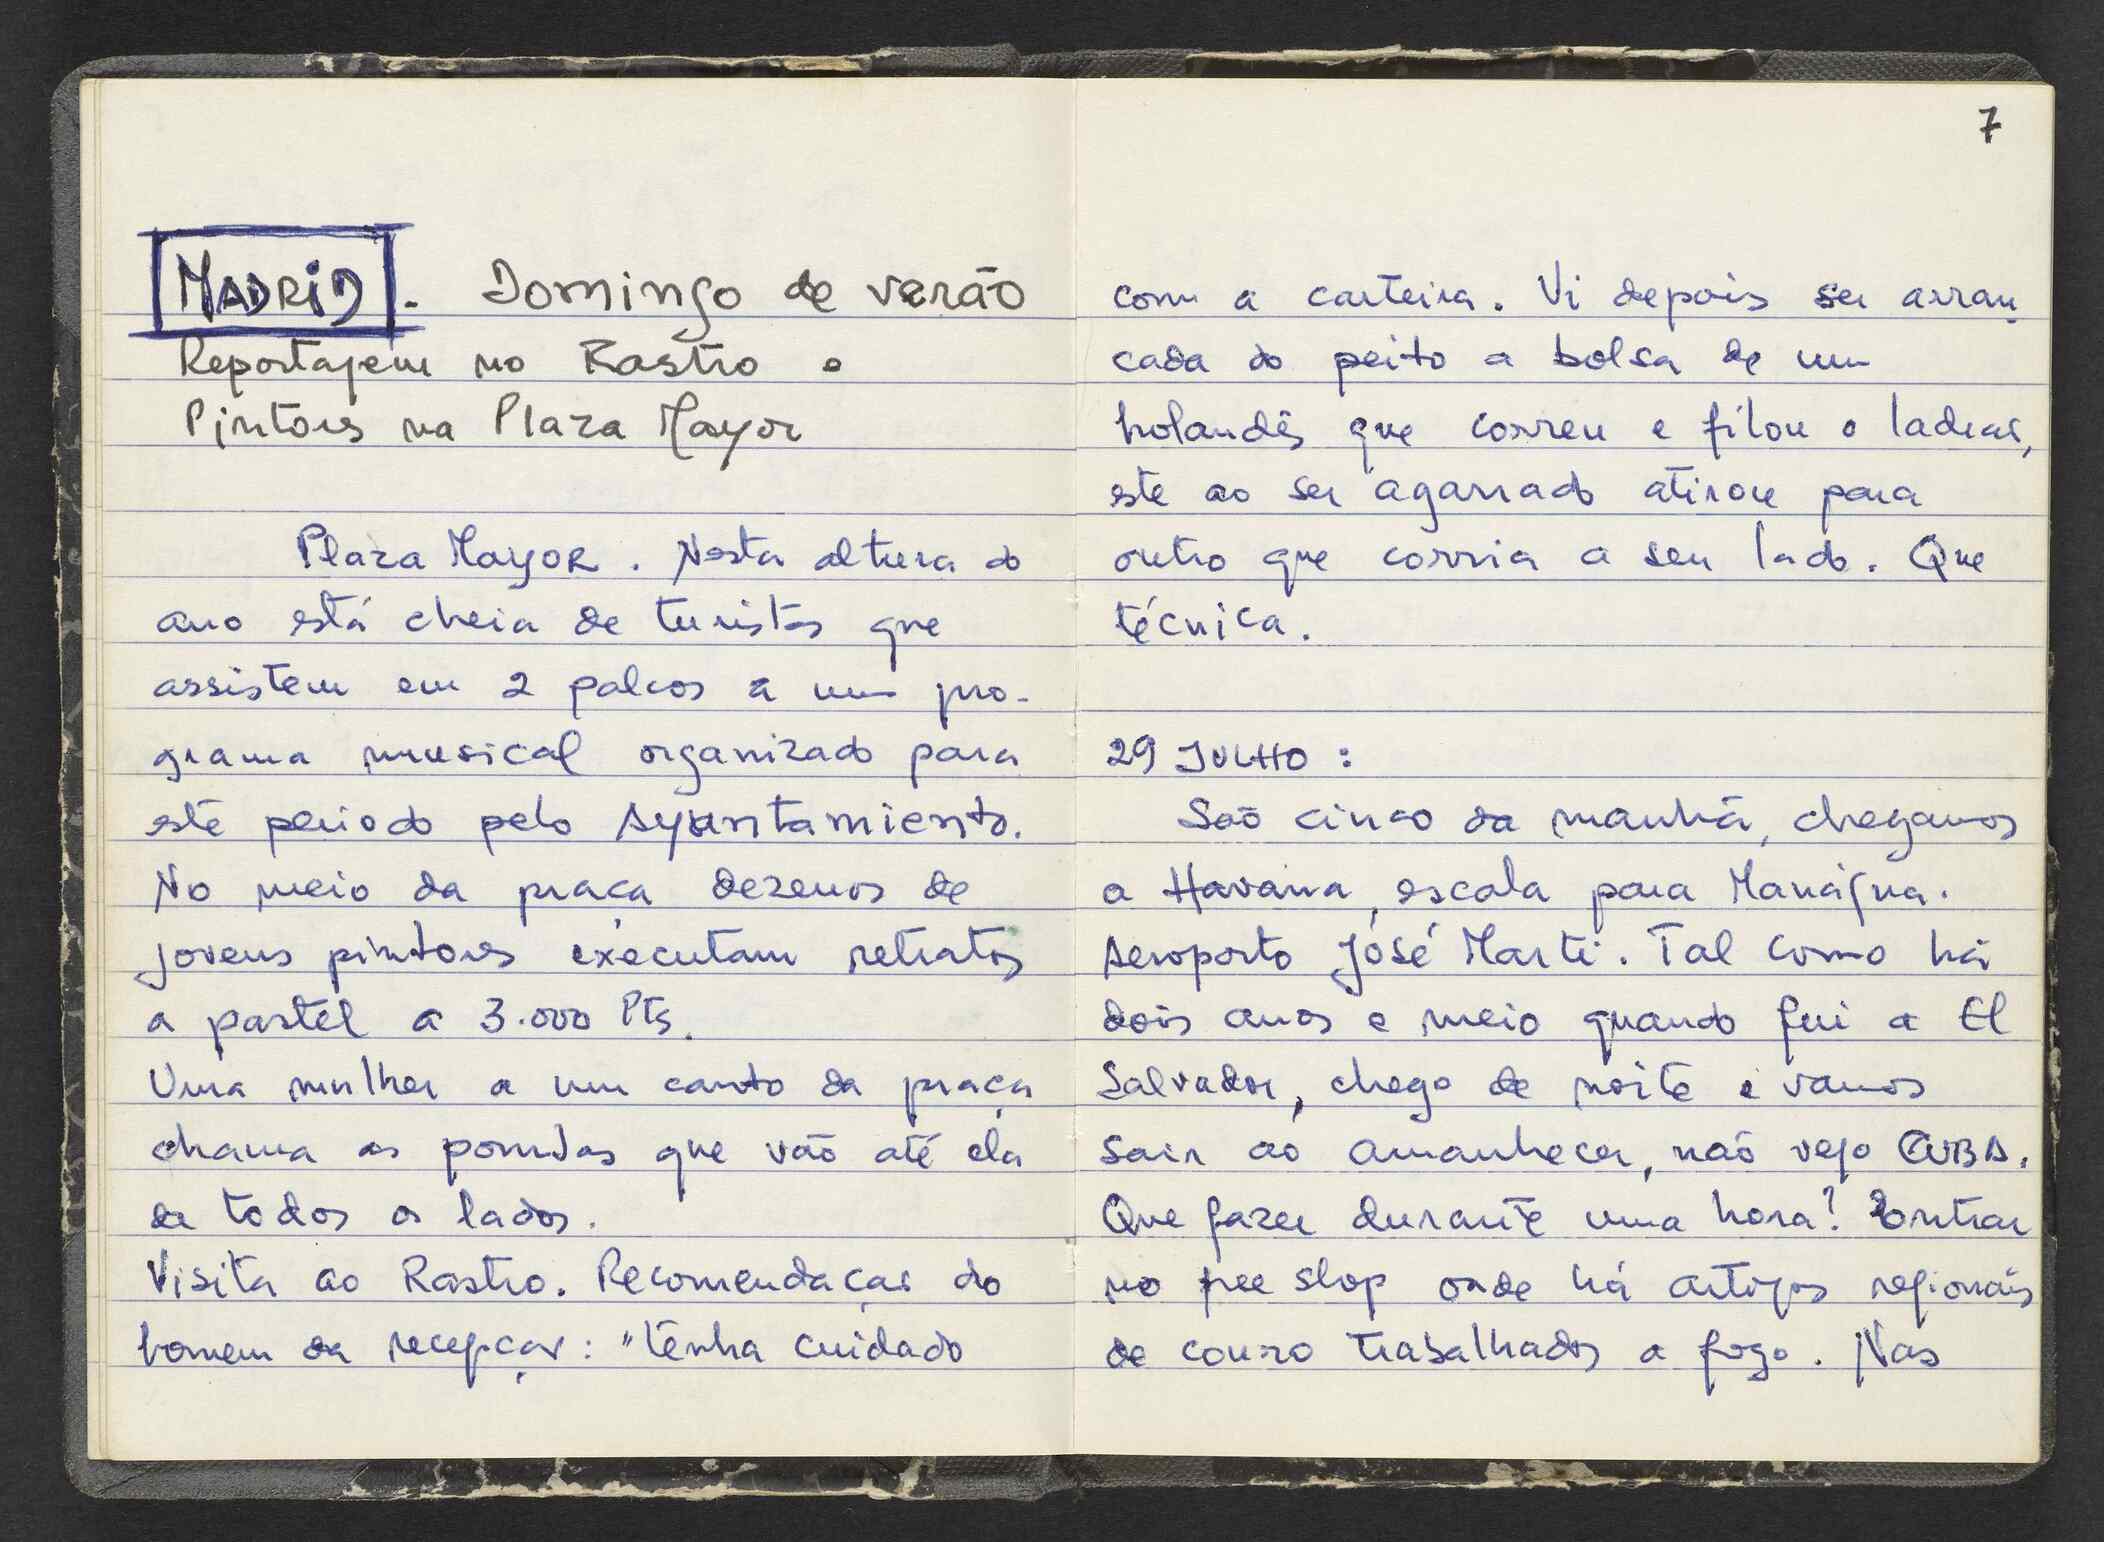 MADRID. Domingo de verão
Reportagem no Rastro e
Pintores na Plaza Mayor
Plaza Mayor. Nesta altura do
ano está cheia de turistas que
assistem em 2 palcos a um pro-
grama musical organizado para
este periodo pelo Ayuntamiento.
No meio da praça dezenas de
jovens pintores executam retratos
a pastel a 3.000 Pts.
Uma mulher a um canto da praça
chama as pombas que vão até ela
de todos os lados.
Visita ao Rastro. Recomendação do
homem da recepção: "tenha cuidado
7
com a carteira. Vi depois ser arran-
cada do peito a bolsa de um
holandês que correu e filou o ladrão,
este ao ser agarrado atirou para
outro que corria a seu lado. Que
técnica.
29 JULHO:
São cinco da manhã, chegamos
a Havana, escala para Manágua.
Aeroporto José Marti. Tal como há
dois anos e meio quando fui a El
Salvador, chego de noite e vamos
sair ao amanhecer, não vejo CUBA.
Que fazer durante uma hora? Entrar
no free shop onde há artigos regionais
de couro trabalhados a fogo. Nas